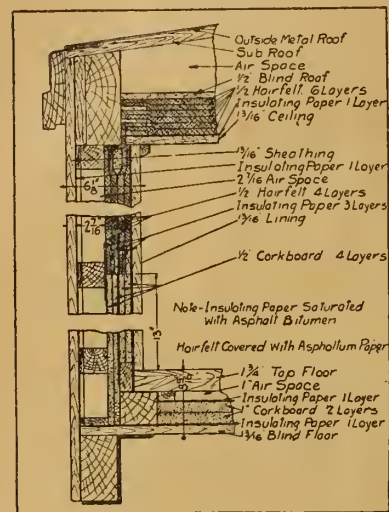 Outside Metal Roof
Sub Roof
Air Space
1/2" Blind Roof
1/2 Hairfelt 6 Layers
Insulating Paper 1 Layer
13/16" Ceiling
13/16" Sheathing
Insulating Paper 1 Layer
2 7/16 Air Space
1/2 Hairfelt 4 Layers
Insulating Paper 3 Layers
13/16 Lining
1/2" Corkboard 4 Layers
2 7/16
13"
Note-Insulating Paper Saturated
With Asphalt Bitumen
Hairfelt Covered With Asphaltum Paper
1 3/4" Top Floor
1" Air Space
Insulating Paper 1 Layer
1" Corkboard 2 Layers
Insulating Paper 1 Layer
13/16 Blind Floor